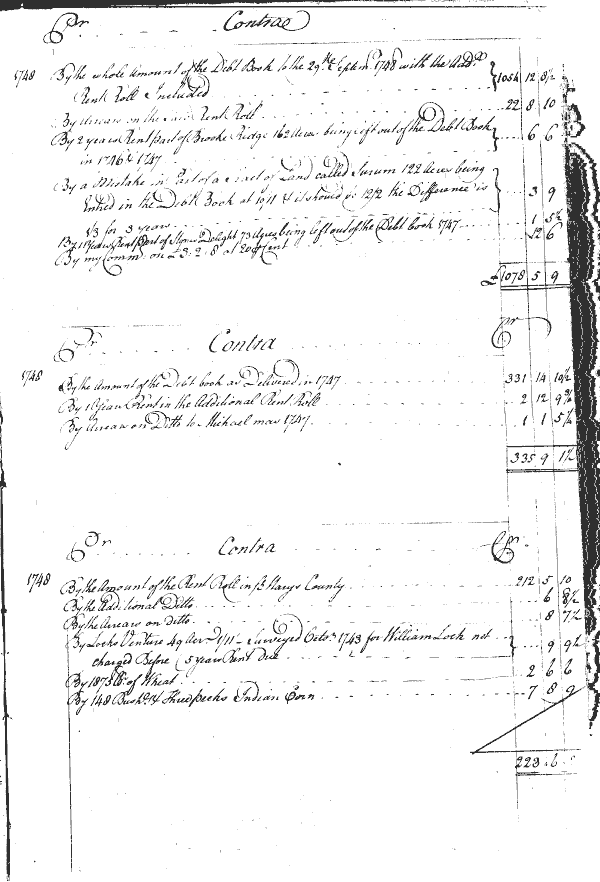 Cr Contra
1748 By the whole Amount of the Debt Book to the 29th Septem 1748 with the Add.l 1054 12 8½
Rent Roll Included
By Arrears on the said Rent Roll 22 8 10
By 2 years Rent part of Brooke Ridge 162 Acres being left out of the Debt Book 6 6
in 1746 & 1747
By a Mistake in Part of a Tract of Land called 122 Acres being
Entred in the Debt Book at 10/11 & it should be 12/2 the Difference is 3 9
1/3 for 3 years
By 1 Years Rent part of Delight 73 Acres being left out of the Debt book 1747 1 5½
By my Comm. on £3.2.8 at 20 P Cent 12 6
£ 1078 5 9
Cr Contra Cr
1748 By the Amount of the Debt book as Delivered in 1747 331 14 10½
By 1 Years Rent in the Additional Rent Roll 2 12 9¾
By Arrears on Ditto to Michael mas 1747 1 1 5½
335 9 1½
Cr Contra Cr
1748 By the Amount of the Rent Roll in St Marys County 212 5 10
By the Additional Ditto 6 8½
By the Arrears on ditto 8 7½
By Locks Venture 49 Acres 1/11 - Surveyed Octo.r 1743 for William Lock not
charged Before 5 years Rent due 9 9½
By 1875 lb of Wheat 2 6 6
By 148 Bush.s & Three pecks Indian Corn 7 8 9
223 6